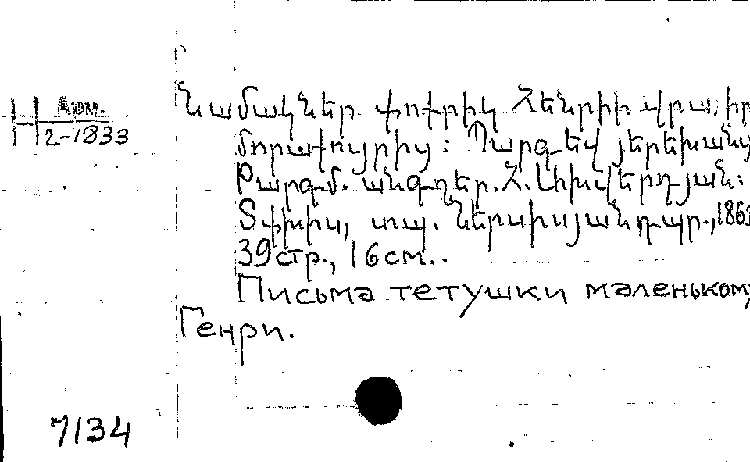 Н Арм.
2-1833
Նամակներ փոքրիկ Հենրիի վրա, իր
մորաքույրից: Պարգեվ յերեխանց
Թարգմ. անգղեր. Հ.
Տփխիս, տպ. Ներսիսյան դպր.,
39 стр., 16 см..
Письма тетушки маленькому
Генри.
7134